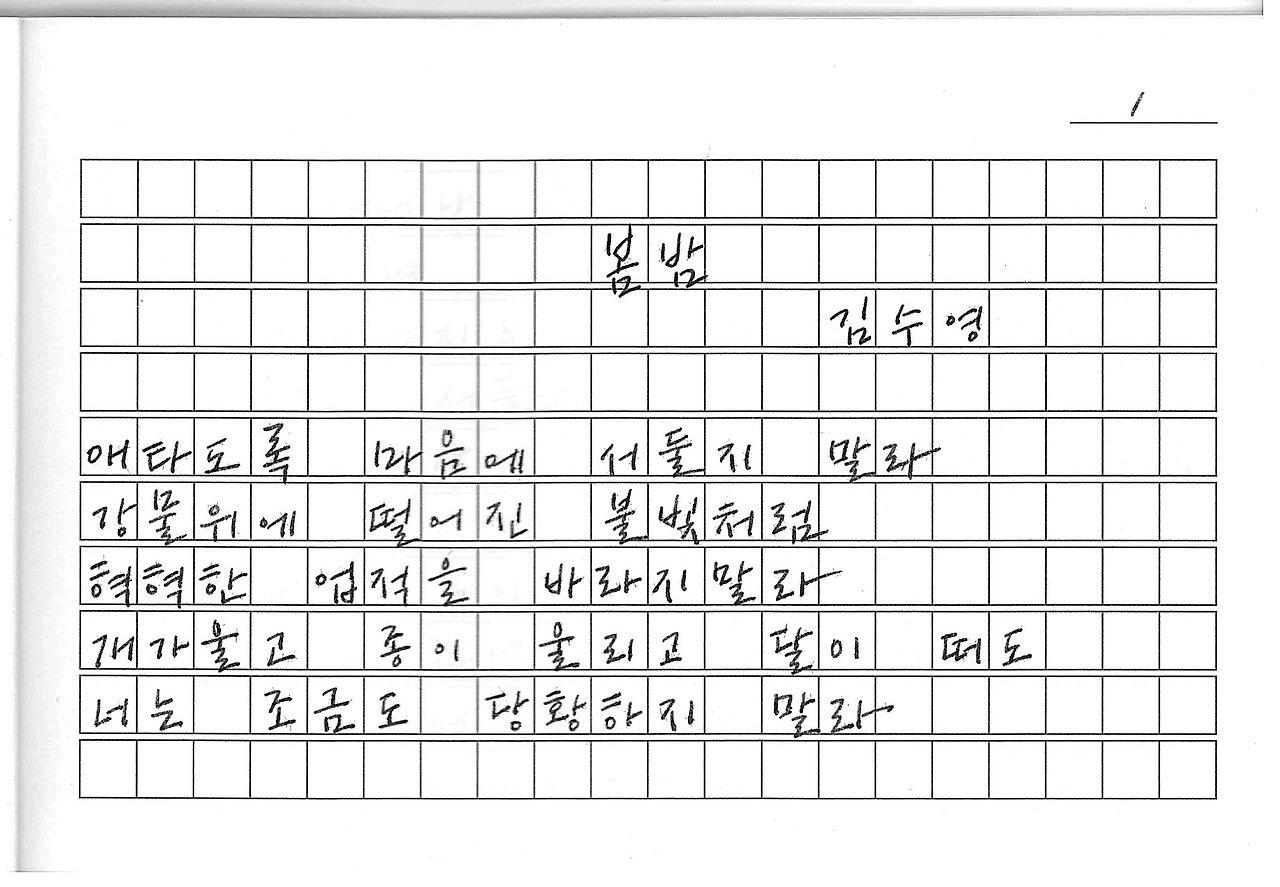 1
봄밤
김수영
애타도록 마음에 서둘지 말라
강물위에 떨어진 불빛처럼
혁혁한 업적을 바라지말라
개가울고 종이 울리고 달이 떠도
너는 조금도 당황하지 말라